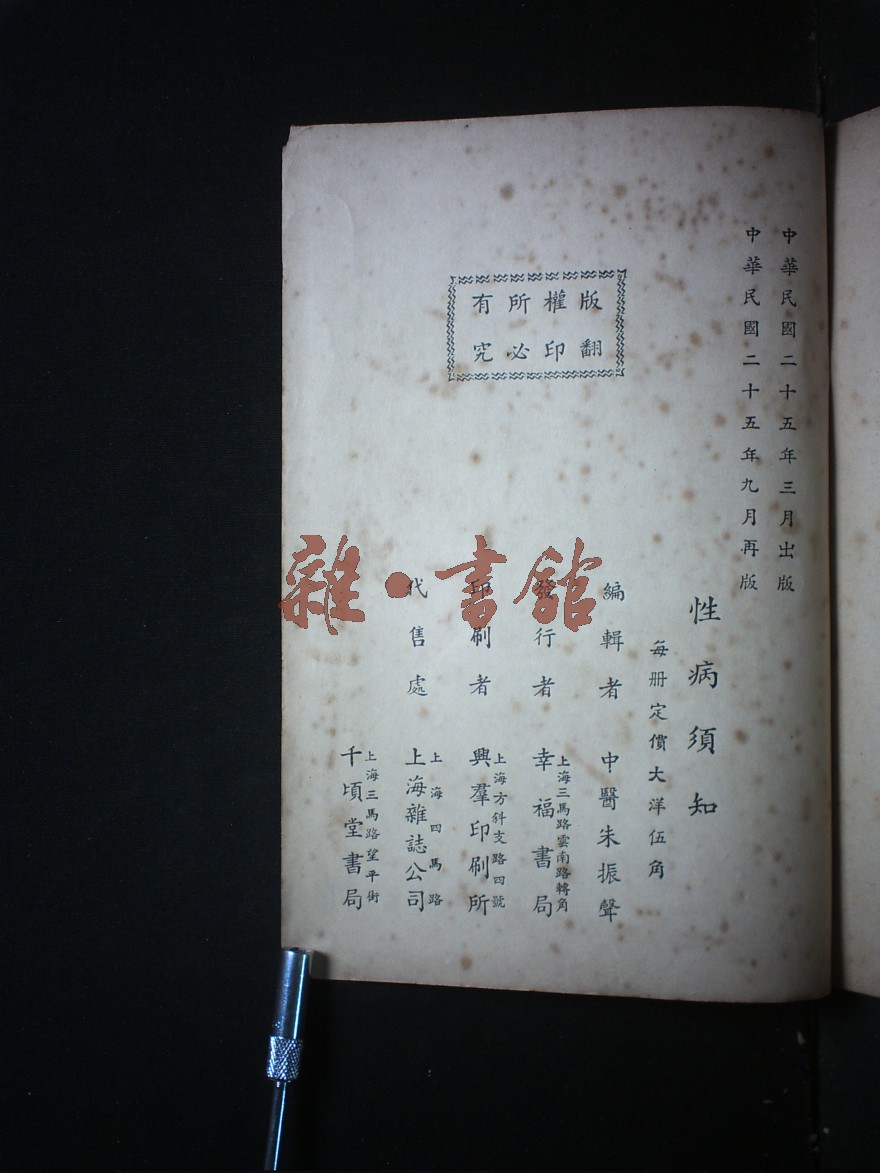 中華民國二十五年三月出版
中華民國二十五年九月再版
版權所有
翻印必究
性病須知
每册定價大洋伍角
編輯者 中醫朱振聲
發行者 上海三馬路雲南路轉角 幸福書局
印刷者 上海方斜支路四號 興羣印刷所
代售處 上海四馬路 上海雜誌公司
上海三馬路望平街 千頃堂書局
雜·書館